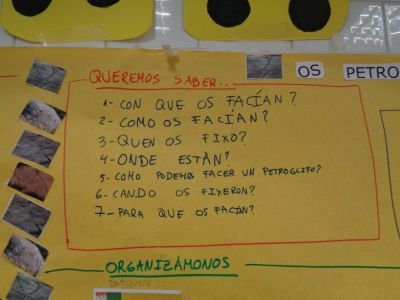 QUEREMOS SABER...
OS PETRO
1- CON QUE OS FACÍAN?
2- COMO OS FACÍAN?
3- QUEN OS FIXO?
4- ONDE ESTÁN?
5- COMO PODEMOS FACER UN PETROGLIFO?
6- CANDO OS FIXERON?
7- PARA QUE OS FACÍAN?
ORGANIZÁMONOS